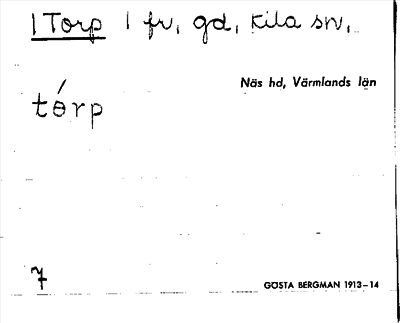 1 Torp 1 fr, gd, Kila sn,
Näs hd, Värmlands län
tɵ́rp
7
GÖSTA BERGMAN 1913–14